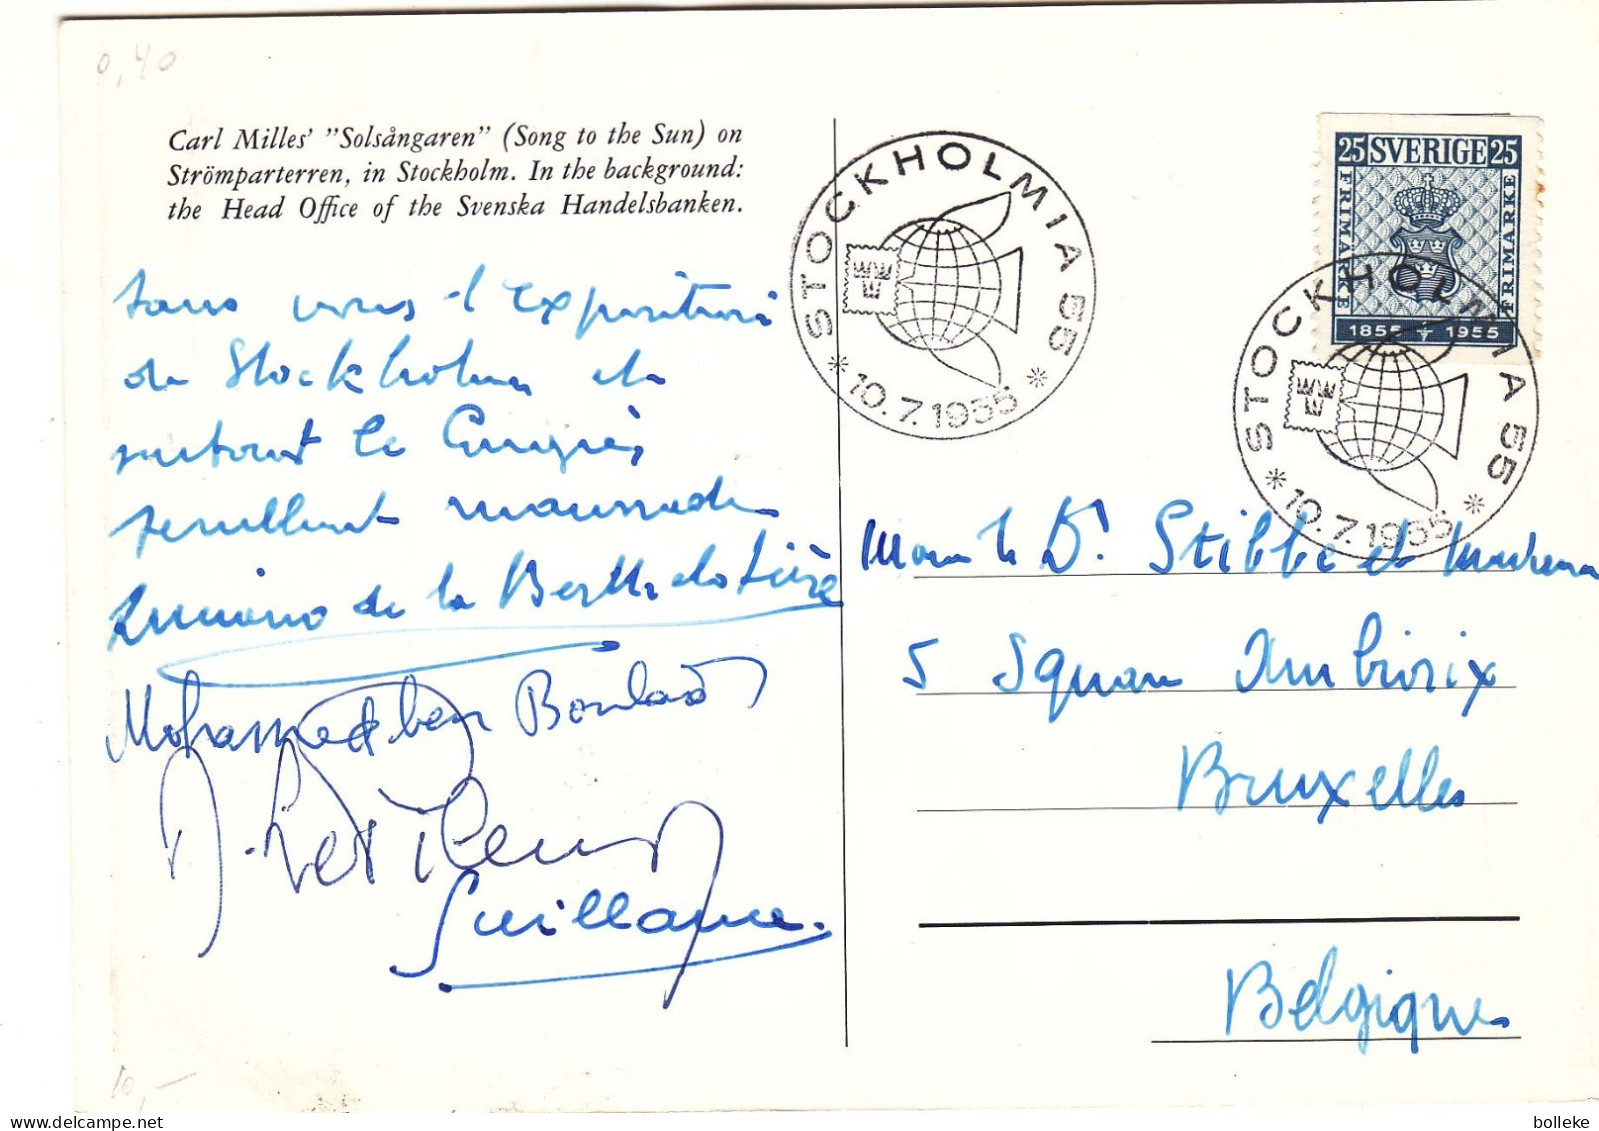 0,40
Carl Milles' "Solsångaren" (Song to the Sun) on
Strömparterren, in Stockholm. In the background:
the Head Office of the Svenska Handelsbanken.
STOCKHOLMIA 55
* 10.7.1955 *
25 SVERIGE 25
FRIMÄRKE
FRIMÄRKE
1855 1955
STOCKHOLMIA 55
* 10.7.1955 *
Sans vous l'exposition
de Stockholm et
surtout le Congrès
semblent maussades
de la Berthelotière
Mohammed ben
Guillaume.
le Dr. Stibbe et Madame
5 Square Ambiorix
Bruxelles
Belgique
10,-
bolleke